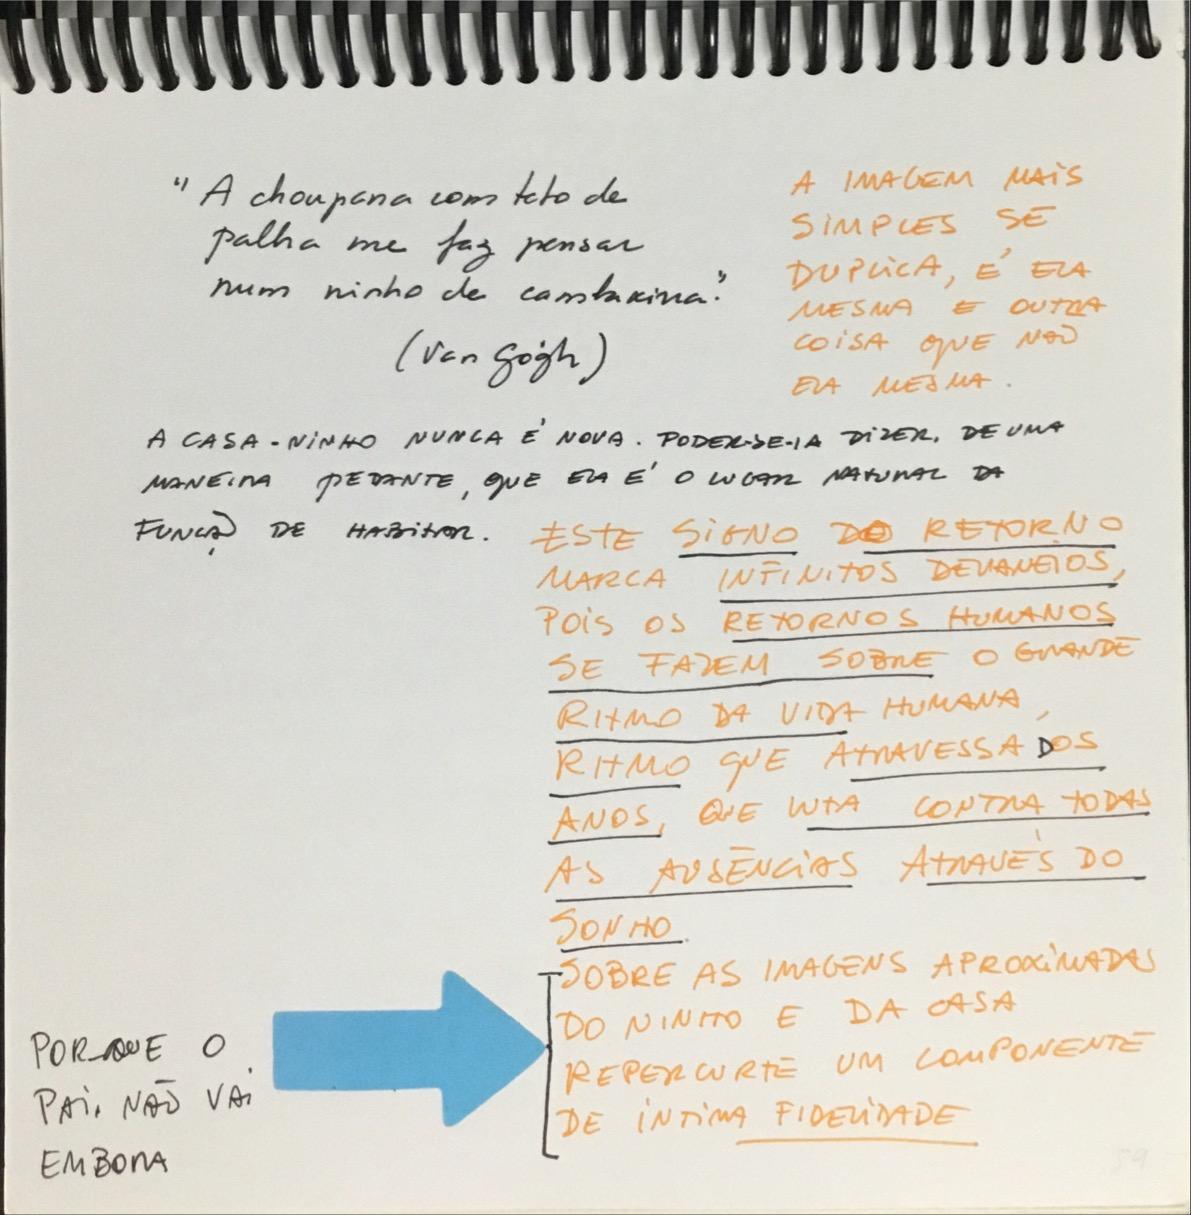 "A choupana com teto de
palha me faz pensar
num ninho de cambaxirra."
(Van Gogh)
A IMAGEM MAIS
SIMPLES SE
DUPLICA, É ELA
MESMA E OUTRA
COISA QUE NÃO
ELA MESMA.
A CASA-NINHO NUNCA É NOVA. PODER-SE-IA DIZER, DE UMA
MANEIRA PEDANTE, QUE ELA É O LUGAR NATURAL DA
FUNÇÃO DE HABITAR.
ESTE SIGNO DO RETORNO
MARCA INFINITOS DEVANEIOS,
POIS OS RETORNOS HUMANOS
SE FAZEM SOBRE O GRANDE
RITMO DA VIDA HUMANA,
RITMO QUE ATRAVESSA OS
ANOS, QUE LUTA CONTRA TODAS
AS AUSÊNCIAS ATRAVÉS DO
SONHO.
SOBRE AS IMAGENS APROXIMADAS
DO NINHO E DA CASA
REPERCURTE UM COMPONENTE
DE ÍNTIMA FIDELIDADE
POR QUE O
PAI, NÃO VAI
EMBORA
59